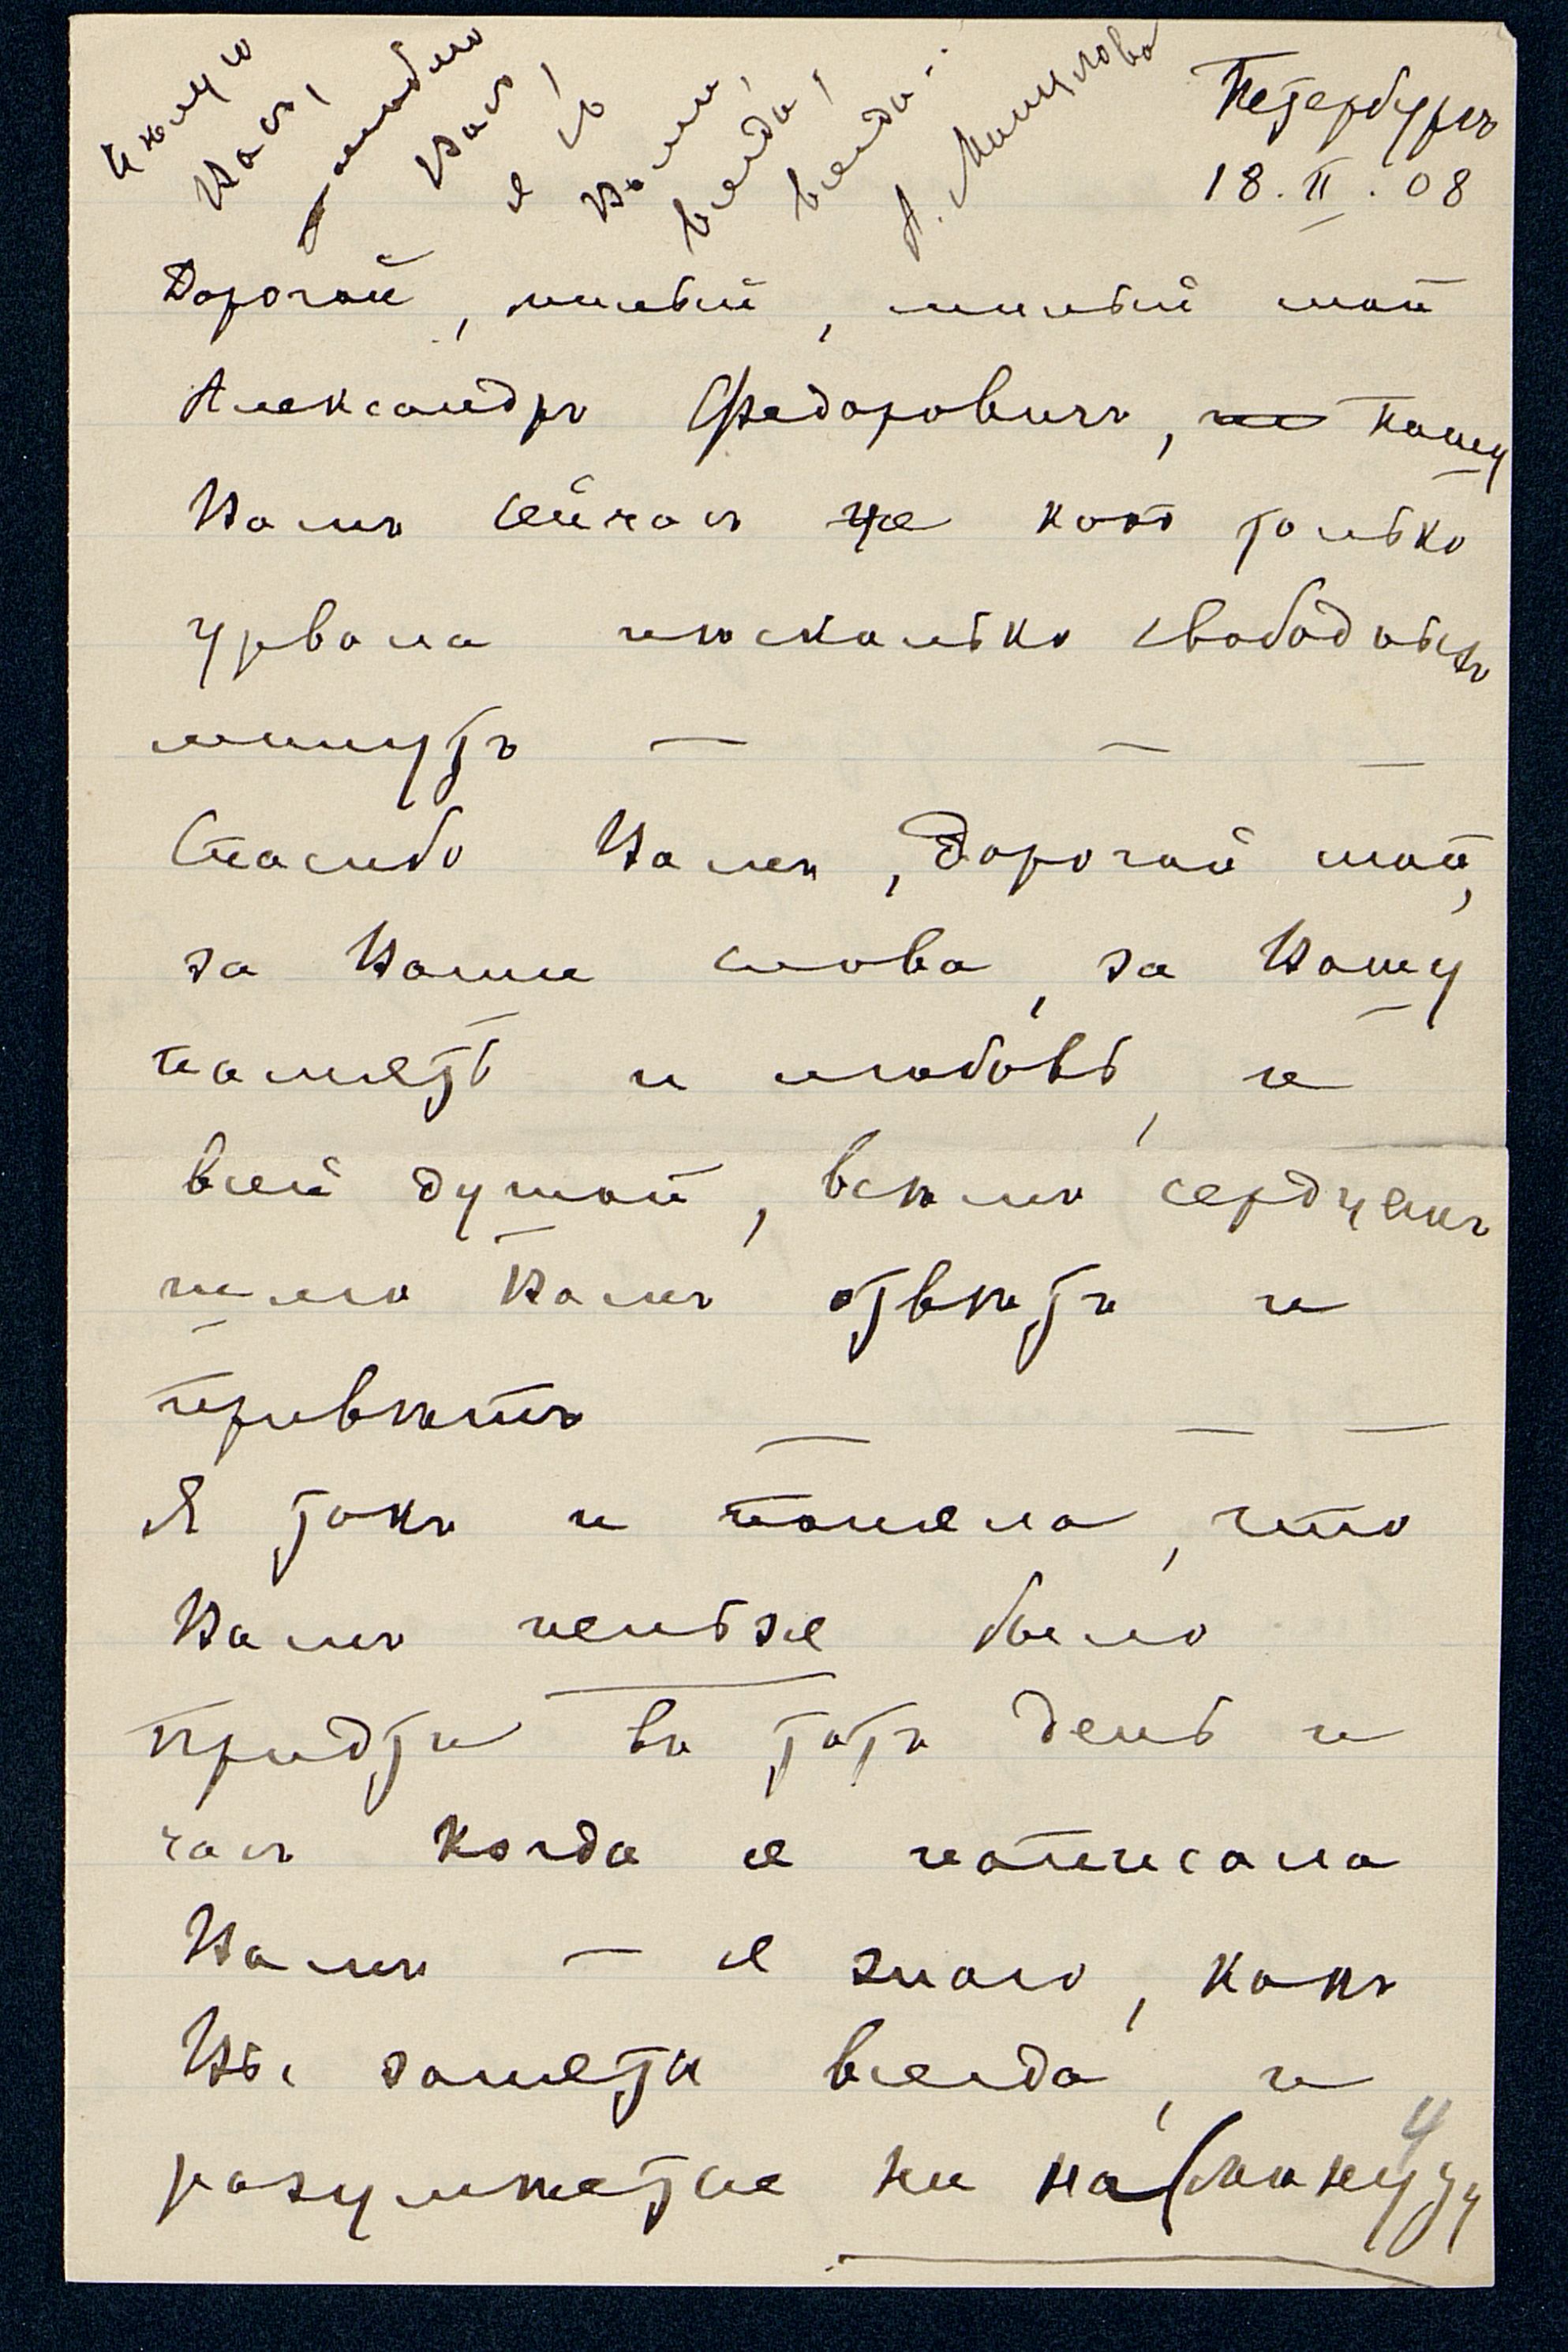 Цѣлую
Васъ,
люблю
Васъ,
я съ
Вами,
всегда,
всегда..
А. Минцлова
Петербургъ
18. II. 08
Дорогой, милый, милый мой
Александръ Федоровичъ, пишу
Вамъ сейчасъ же какъ только
урвала нѣсколько свободныхъ
минутъ — — —
Спасибо Вамъ, дорогой мой,
за Ваши слова, за Вашу
память и любовь, и
всей душой, всѣмъ сердцемъ
шлю Вамъ отвѣтъ и
привѣтъ — — —
Я такъ и поняла, что
Вамъ нельзя было
придти въ тотъ день и
часъ когда я написала
Вамъ — я знаю, какъ
Вы заняты всегда, и
разумѣется ни на минуту
4